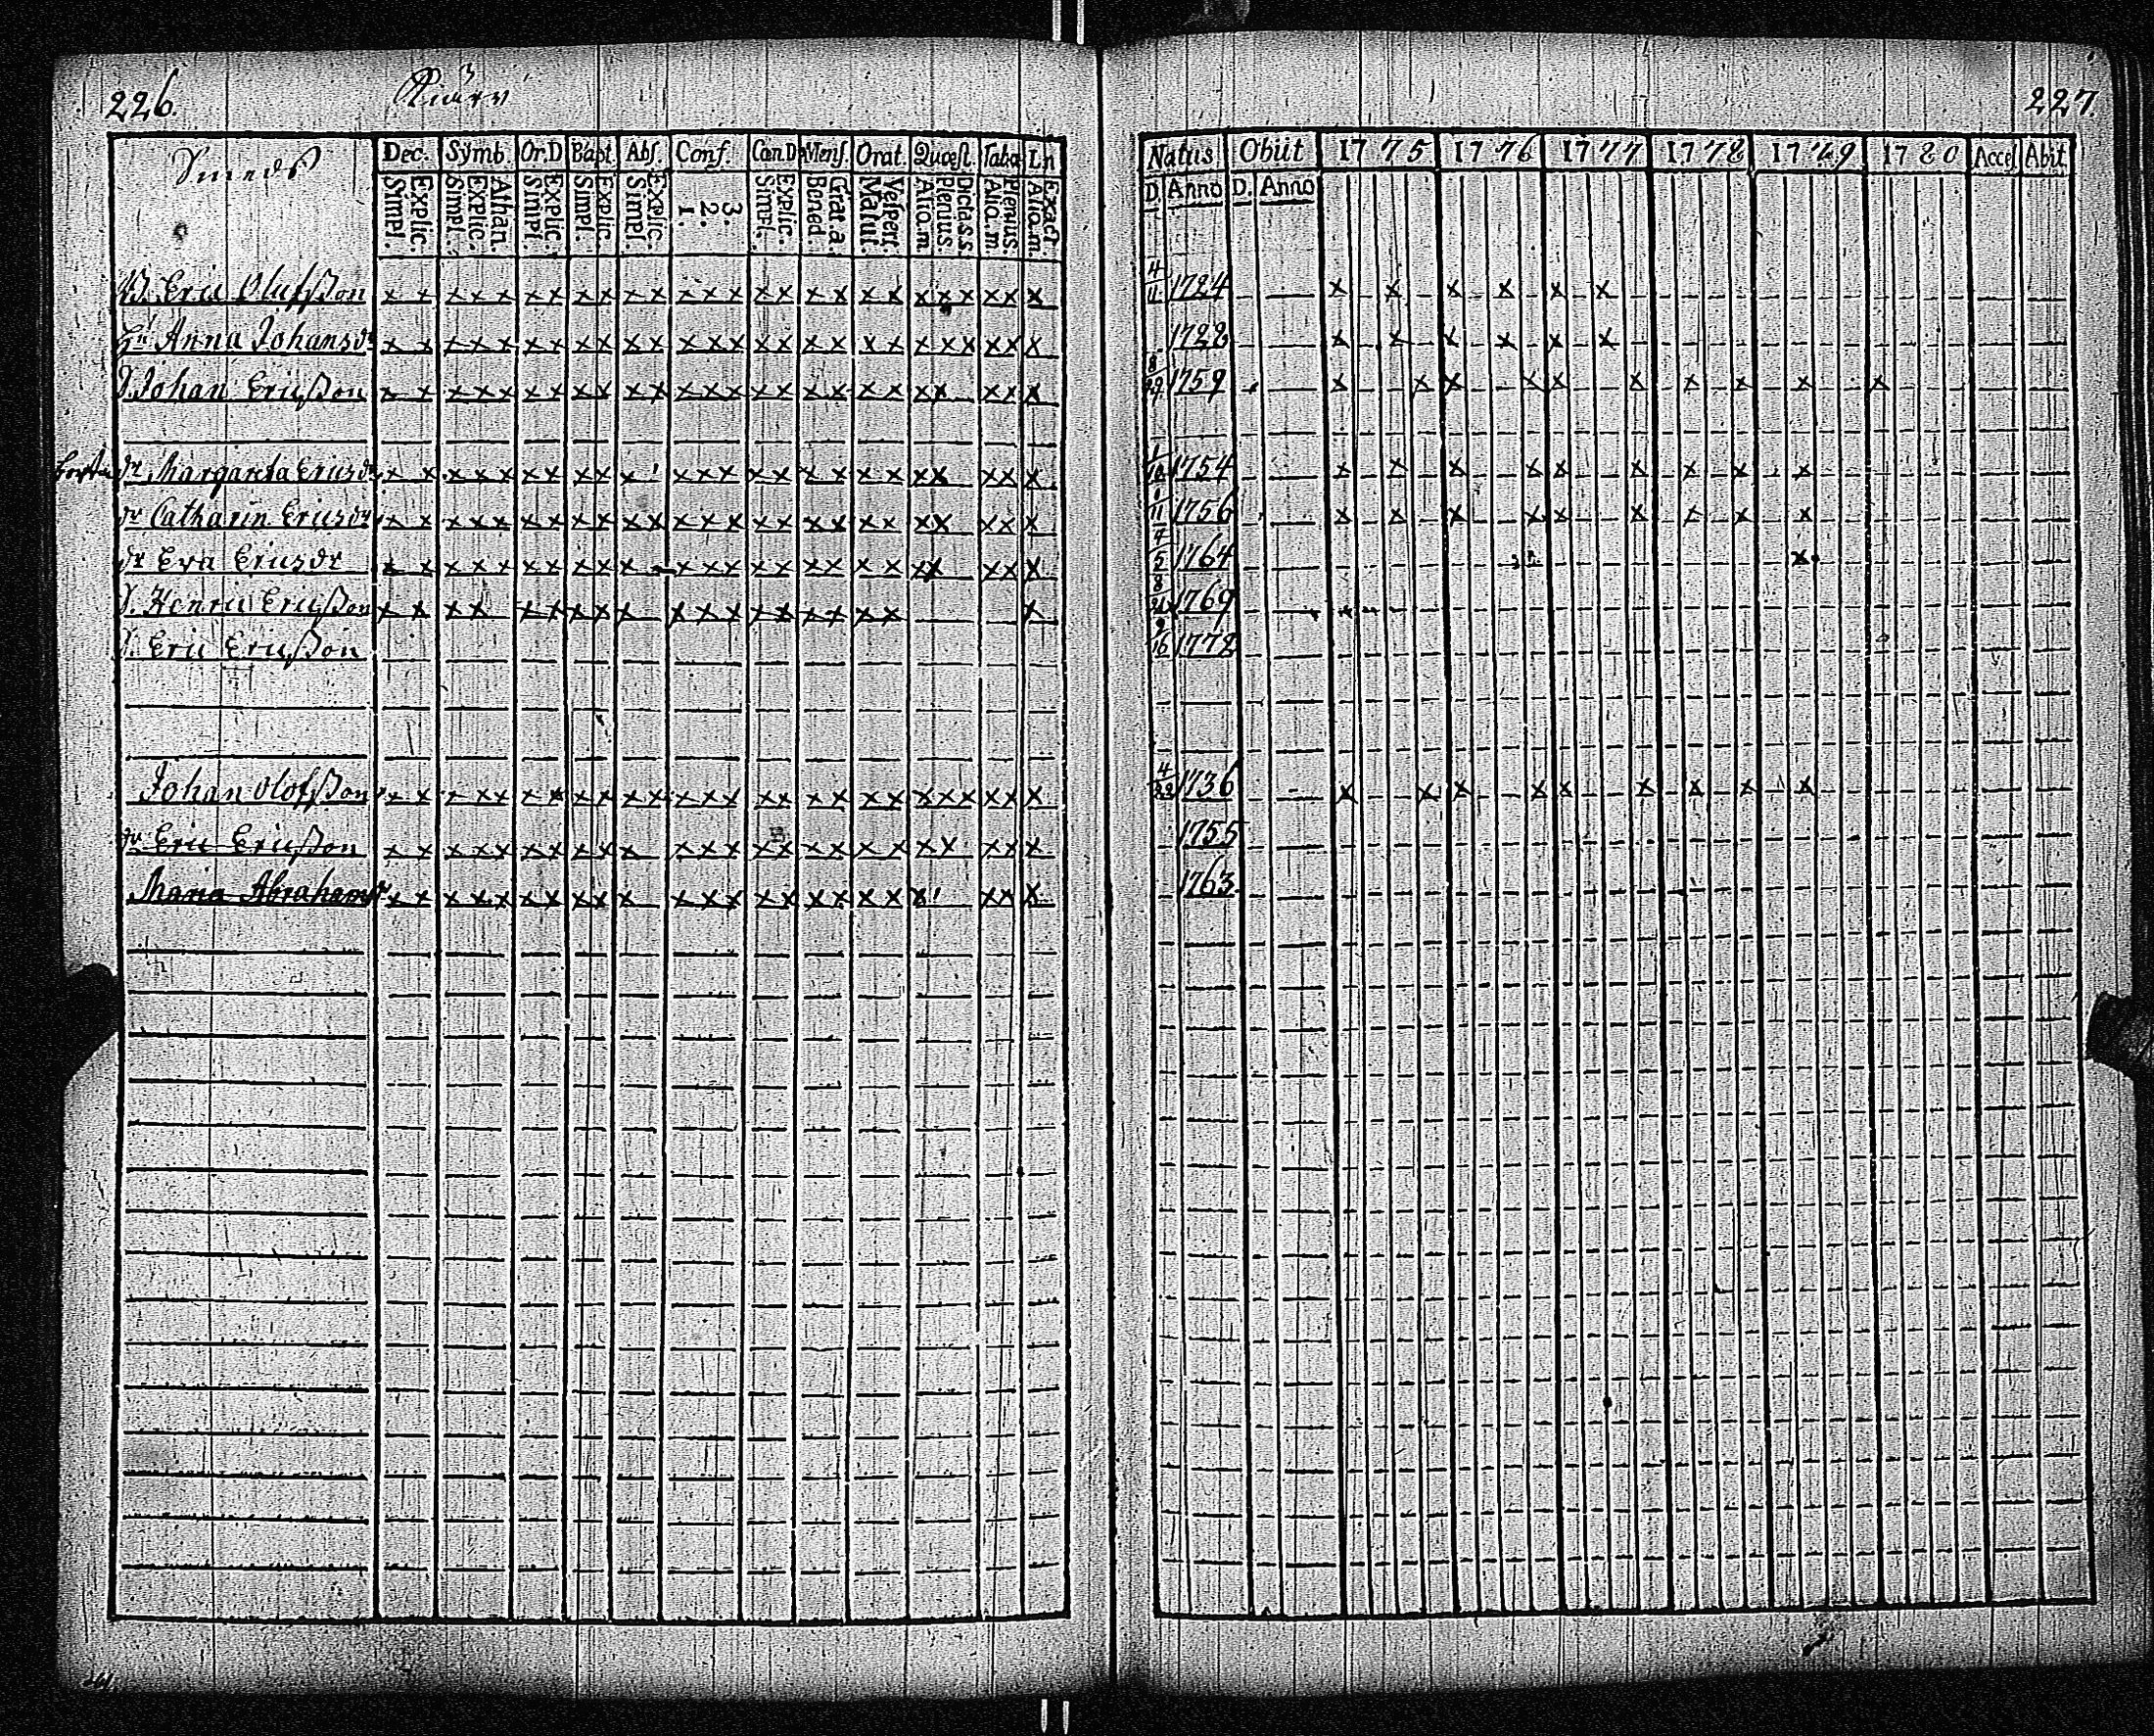 226.
Smeds
Dec. Symb. Or.D Bapt. Abs. Conf. Cœn.D Mens. Orat. Quæst. Taba Ln
Simpl. Explic. Simpl. Explic. Athan. Simpl. Explic. Simpl. Explic. Simpl. Explic. 1. 2. 3. Simpl. Explic. Bened. Grat.a. Matut. Vespert. Alio.m. Plenius. Alio.m. Plenius. Alio.m. Exact.
B. Eric Olufsson x x x x x x x x x x x x x x x x x x x x x x x x x x
Anna Johansdr x x x x x x x x x x x x x x x x x x x x x x x x x x
S. Johan Ericsson x x x x x x x x x x x x x x x x x x x x x x x x x
dr Margareta Ericsdr x x x x x x x x x x x x x x x x x x x x x x x x
dr Catharin Ericsdr x x x x x x x x x x x x x x x x x x x x x x x x x
dr Eva Ericsdr x x x x x x x x x x x x x x x x x x x x x x x x
S. Henric Ericsson x x x x x x x x x x x x x x x x x x x
S. Eric Ericsson
Johan Olofsson x x x x x x x x x x x x x x x x x x x x x x x x x x
dr Eric Ericsson x x x x x x x x x x x x x x x x x x x x x x x x
Maria Abrahamsdr x x x x x x x x x x x x x x x x x x x x x x x
227.
Natus Obiit 1775 1776 1777 1778 1779 1780 Acces Abit
D. Anno D. Anno
4/11 1724 x x x x x x
1728 x x x x x x
8/29 1759 x x x x x x x x x x
1/10 1754 x x x x x x x x x
1/11 1756 x x x x x x x x x
4/5 1764 x
8/21 1769
9/16 1772
4/22 1736 x x x x x x x x x
1755
1763.